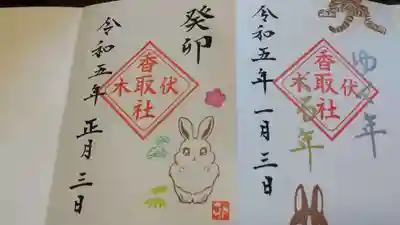 ゆく年
くる年
伏木
香取社
令和五年 一月三日
癸卯
伏木
香取社
令和五年 正月三日